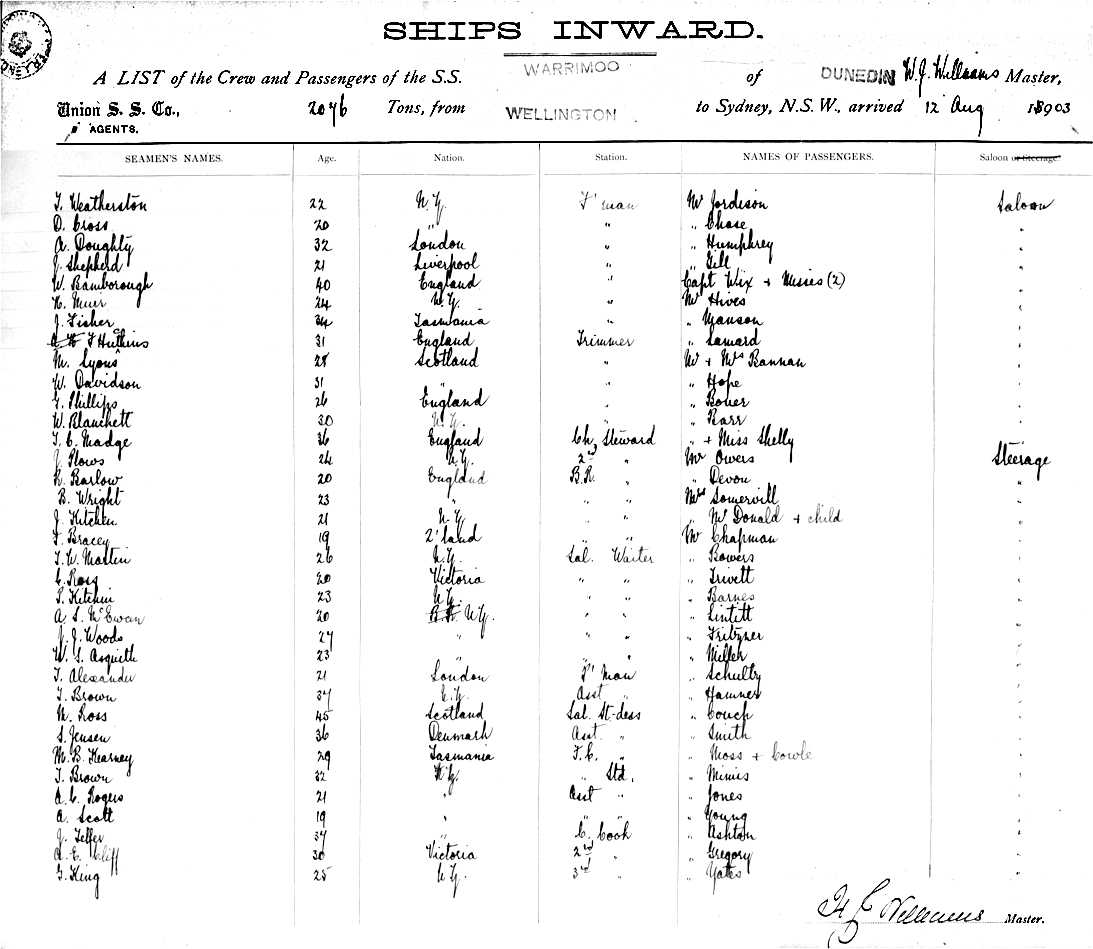 SHIPS INWARD.
A LIST of the Crew and Passengers of the S.S. WARRIMOO of DUNEDIN W.J. Williams Master,
Union S. S. Co., 2076 Tons, from WELLINGTON to Sydney, N.S.W., arrived 12 Aug 18903
AGENTS.
SEAMEN'S NAMES. Age. Nation. Station. NAMES OF PASSENGERS. Saloon or Steerage
T. Weatherston 22 N.Z. F'man Mr Jordison Saloon
D. Cross 20 " " " Chase "
A. Doughty 32 London " " Humphrey "
J. Shepherd 21 Liverpool " " Gill "
W. Bamborough 40 England " Capt Wix + Misses (2) "
H. Muir 24 N.Z. " Mr Hives "
J. Fisher 34 Tasmania " " Manson "
F Hutchins 31 England Trimmer " Lamard "
M. Lyons 28 Scotland " Mr + Mrs Bannan "
W. Davidson 31 " " " Hope "
G. Phillips 26 England " " Bower "
W. Blanchett 30 N.Z. " " Barr "
T. C. Madge 36 England Ch. Steward " + Miss Shelly "
J. Plows 24 N.Z. 2nd " Mr Owers Steerage
R. Barlow 20 England B.R. " " Devon "
B. Wright 23 " " " Mrs Somervill "
J. Kitchin 21 N.Z. " " " McDonald + child "
F. Bracey 19 Q'land " " Mr Chapman "
T. W. Martin 26 N.Z. Sal. Waiter " Bowers "
C. Ross 20 Victoria " " " Trivett "
S. Kitchin 23 N.Z. " " " Barnes "
A. S. McEwan 20 N.Z. " " " Lintett "
J. J. Woods 27 " " " " Fritzner "
W. S. Asquith 23 " " " " Miller "
T. Alexander 21 London P' Man " Schulty "
T. Brown 37 N.Z. Asst " " Hamner "
M. Ross 45 Scotland Sal. St-dess " Couch "
S. Jensen 36 Denmark Asst. " " Smith "
M. B. Kearney 29 Tasmania F.C. " " Moss + Cowle "
T. Brown 32 N.Z. " Std. " Mimis "
A. C. Rogers 21 " Asst " " Jones "
A. Scott 19 " " Young "
J. Telfer 37 " C. Cook " Ashton "
A. E. Cliff 30 Victoria 2nd " " Gregory "
G. King 25 N.Z. 3rd " " Yates "
Williams Master.